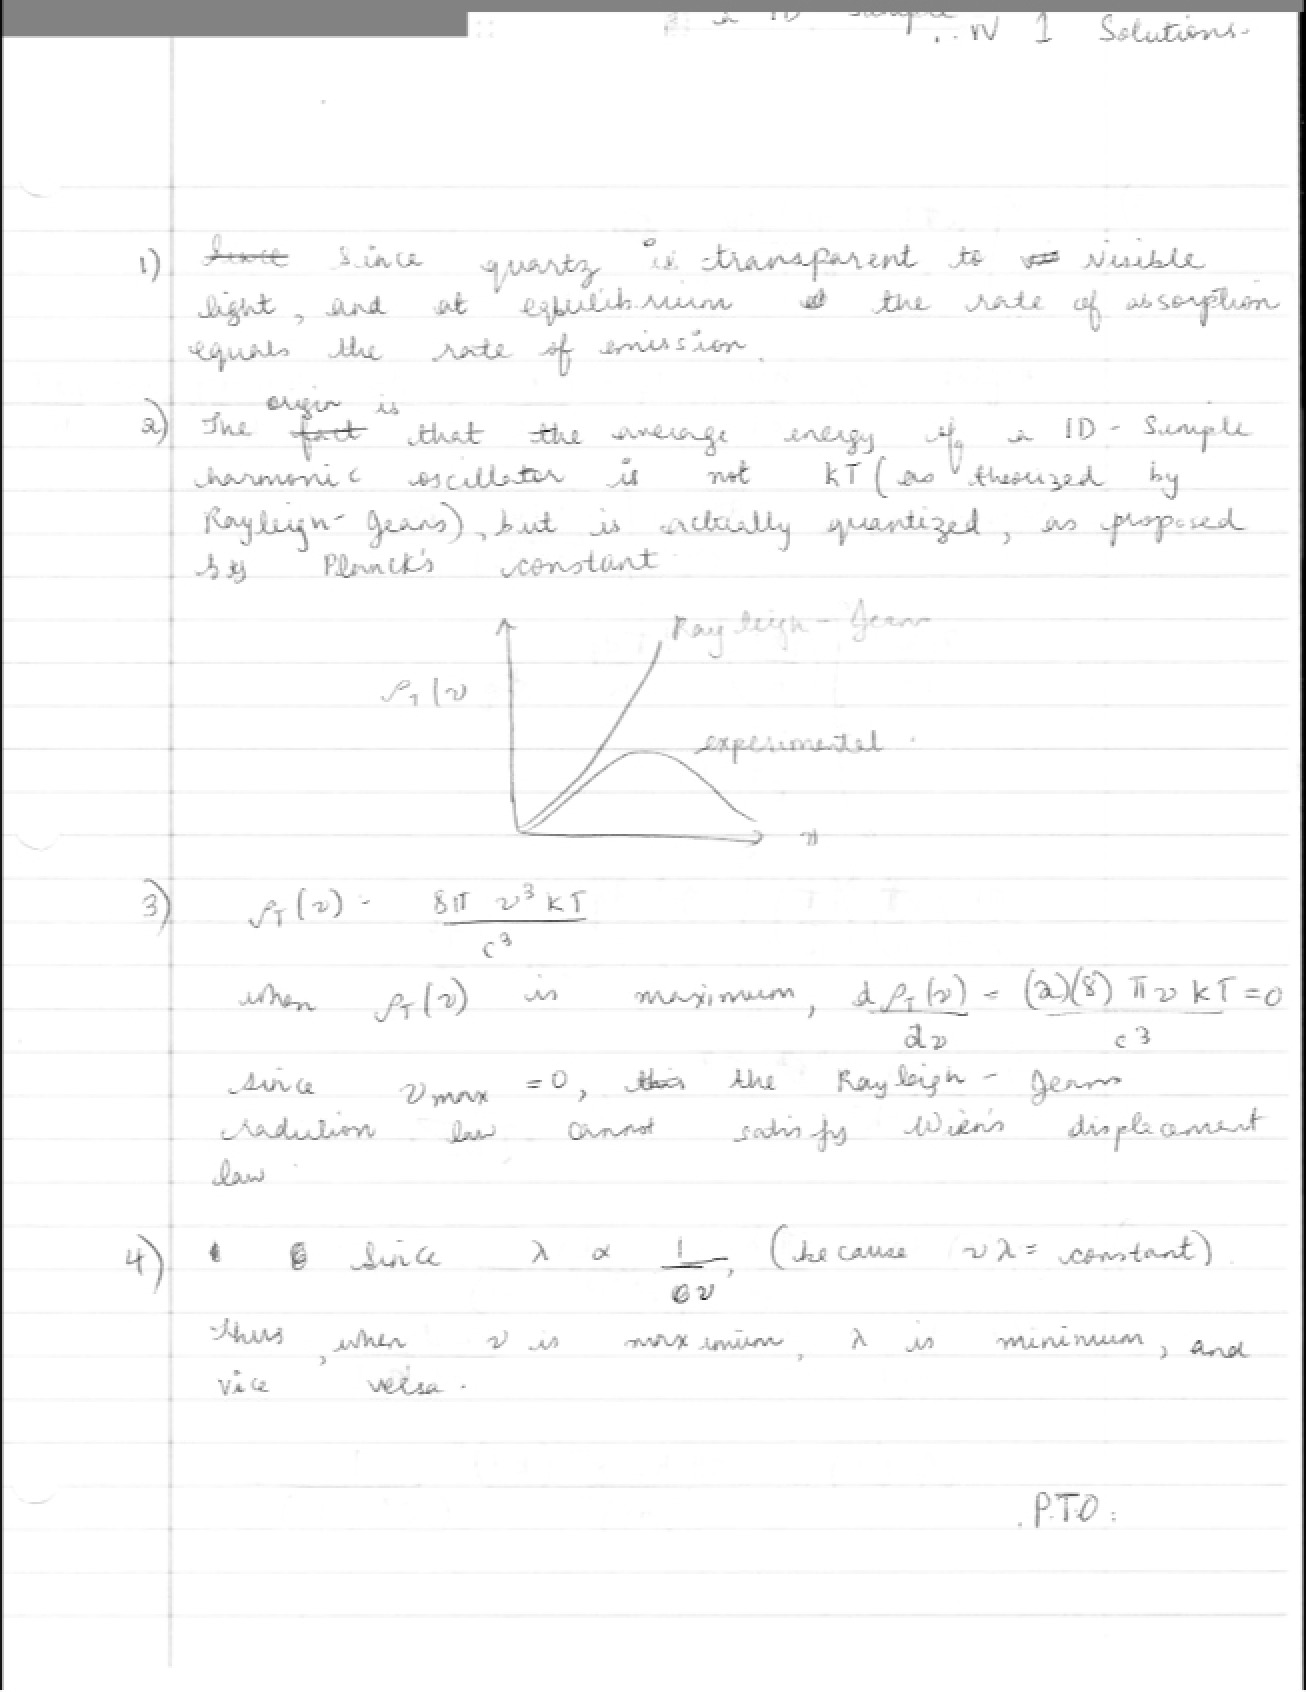 a 1D sample
W 1 Solutions.
1) Since Since quartz is transparent to visible
light, and at equilibrium the rate of absorption
equals the rate of emission.
origin is
2) The fact that the average energy of a 1D - Simple
harmonic oscillator is not kT (as theorized by
Rayleigh-Jeans), but is actually quantized, as proposed
by Planck's constant
Rayleigh - Jeans
ρT(ν
experimental
ν
3) ρT(ν) = 8π ν³ kT / c³
when ρT(ν) is maximum, dρT(ν)/dν = (2)(8) π ν kT / c³ = 0
since νmax = 0, this the Rayleigh - Jeans
radiation law cannot satisfy Wien's displacement
law
4) Since λ ∝ 1/ν, (because νλ = constant).
Thus, when ν is maximum, λ is minimum, and
vice versa.
P.T.O.